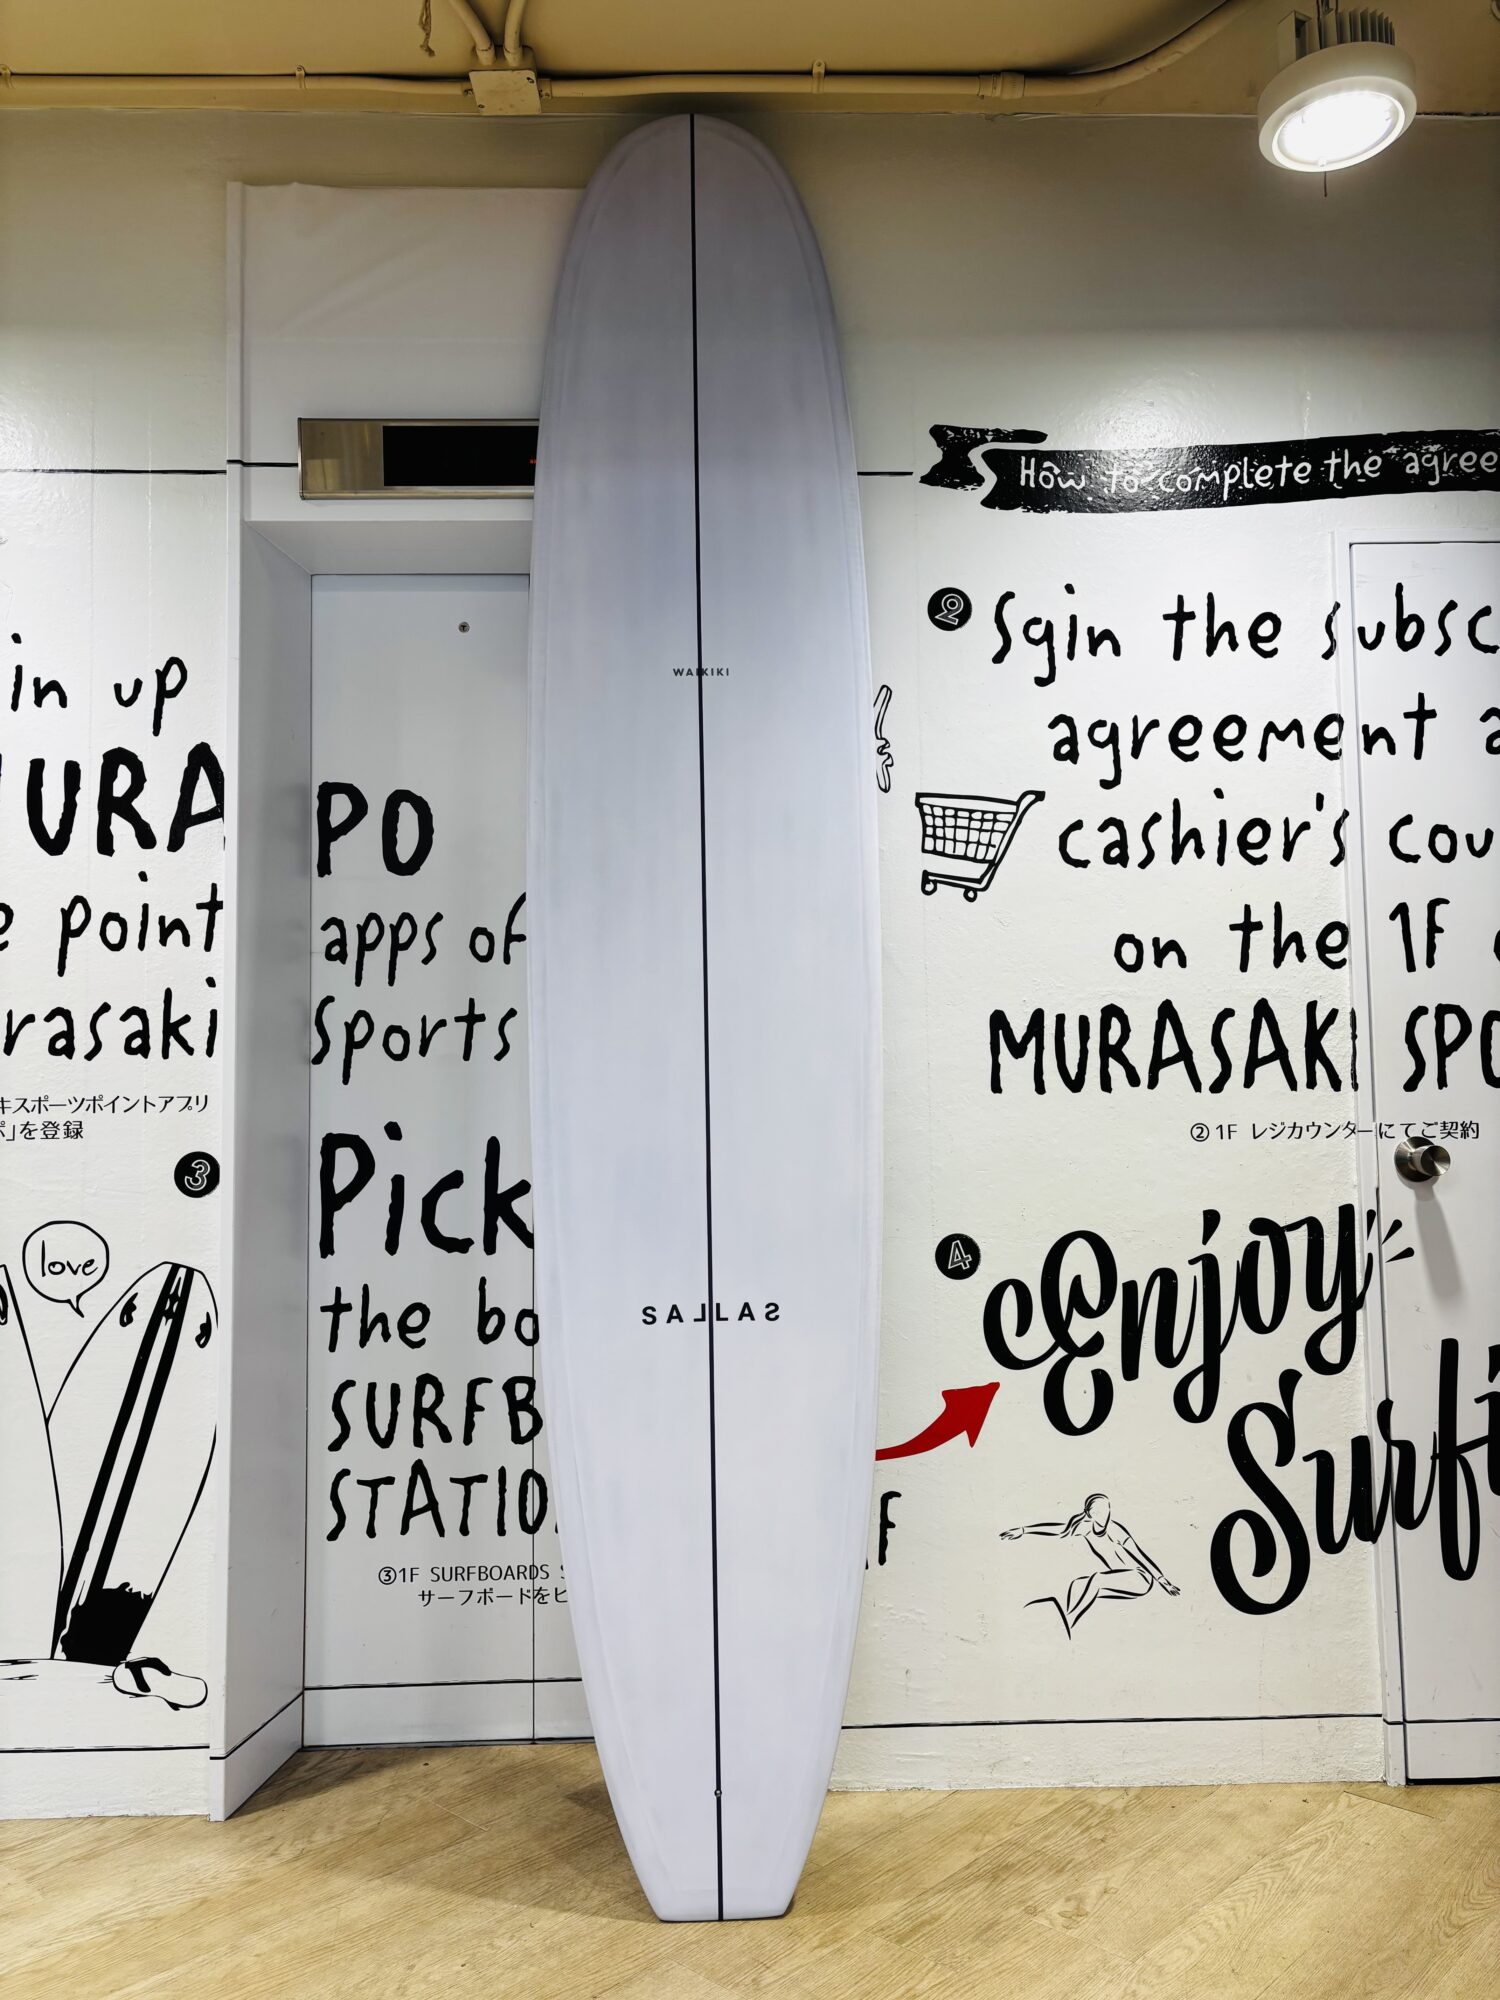 How to complete the agree
in up
URA
point
rasaki
キスポーツポイントアプリ
」を登録
3
love
PO
apps of
Sports
Pick
the bo
SURFB
STATIO
③1F SURFBOARDS
サーフボードをピ
WAIKIKI
SALLAS
2 Sgin the subsc
agreement a
cashier's cou
on the 1F
MURASAKI SPO
②1F レジカウンターにてご契約
4 Enjoy
Surfi